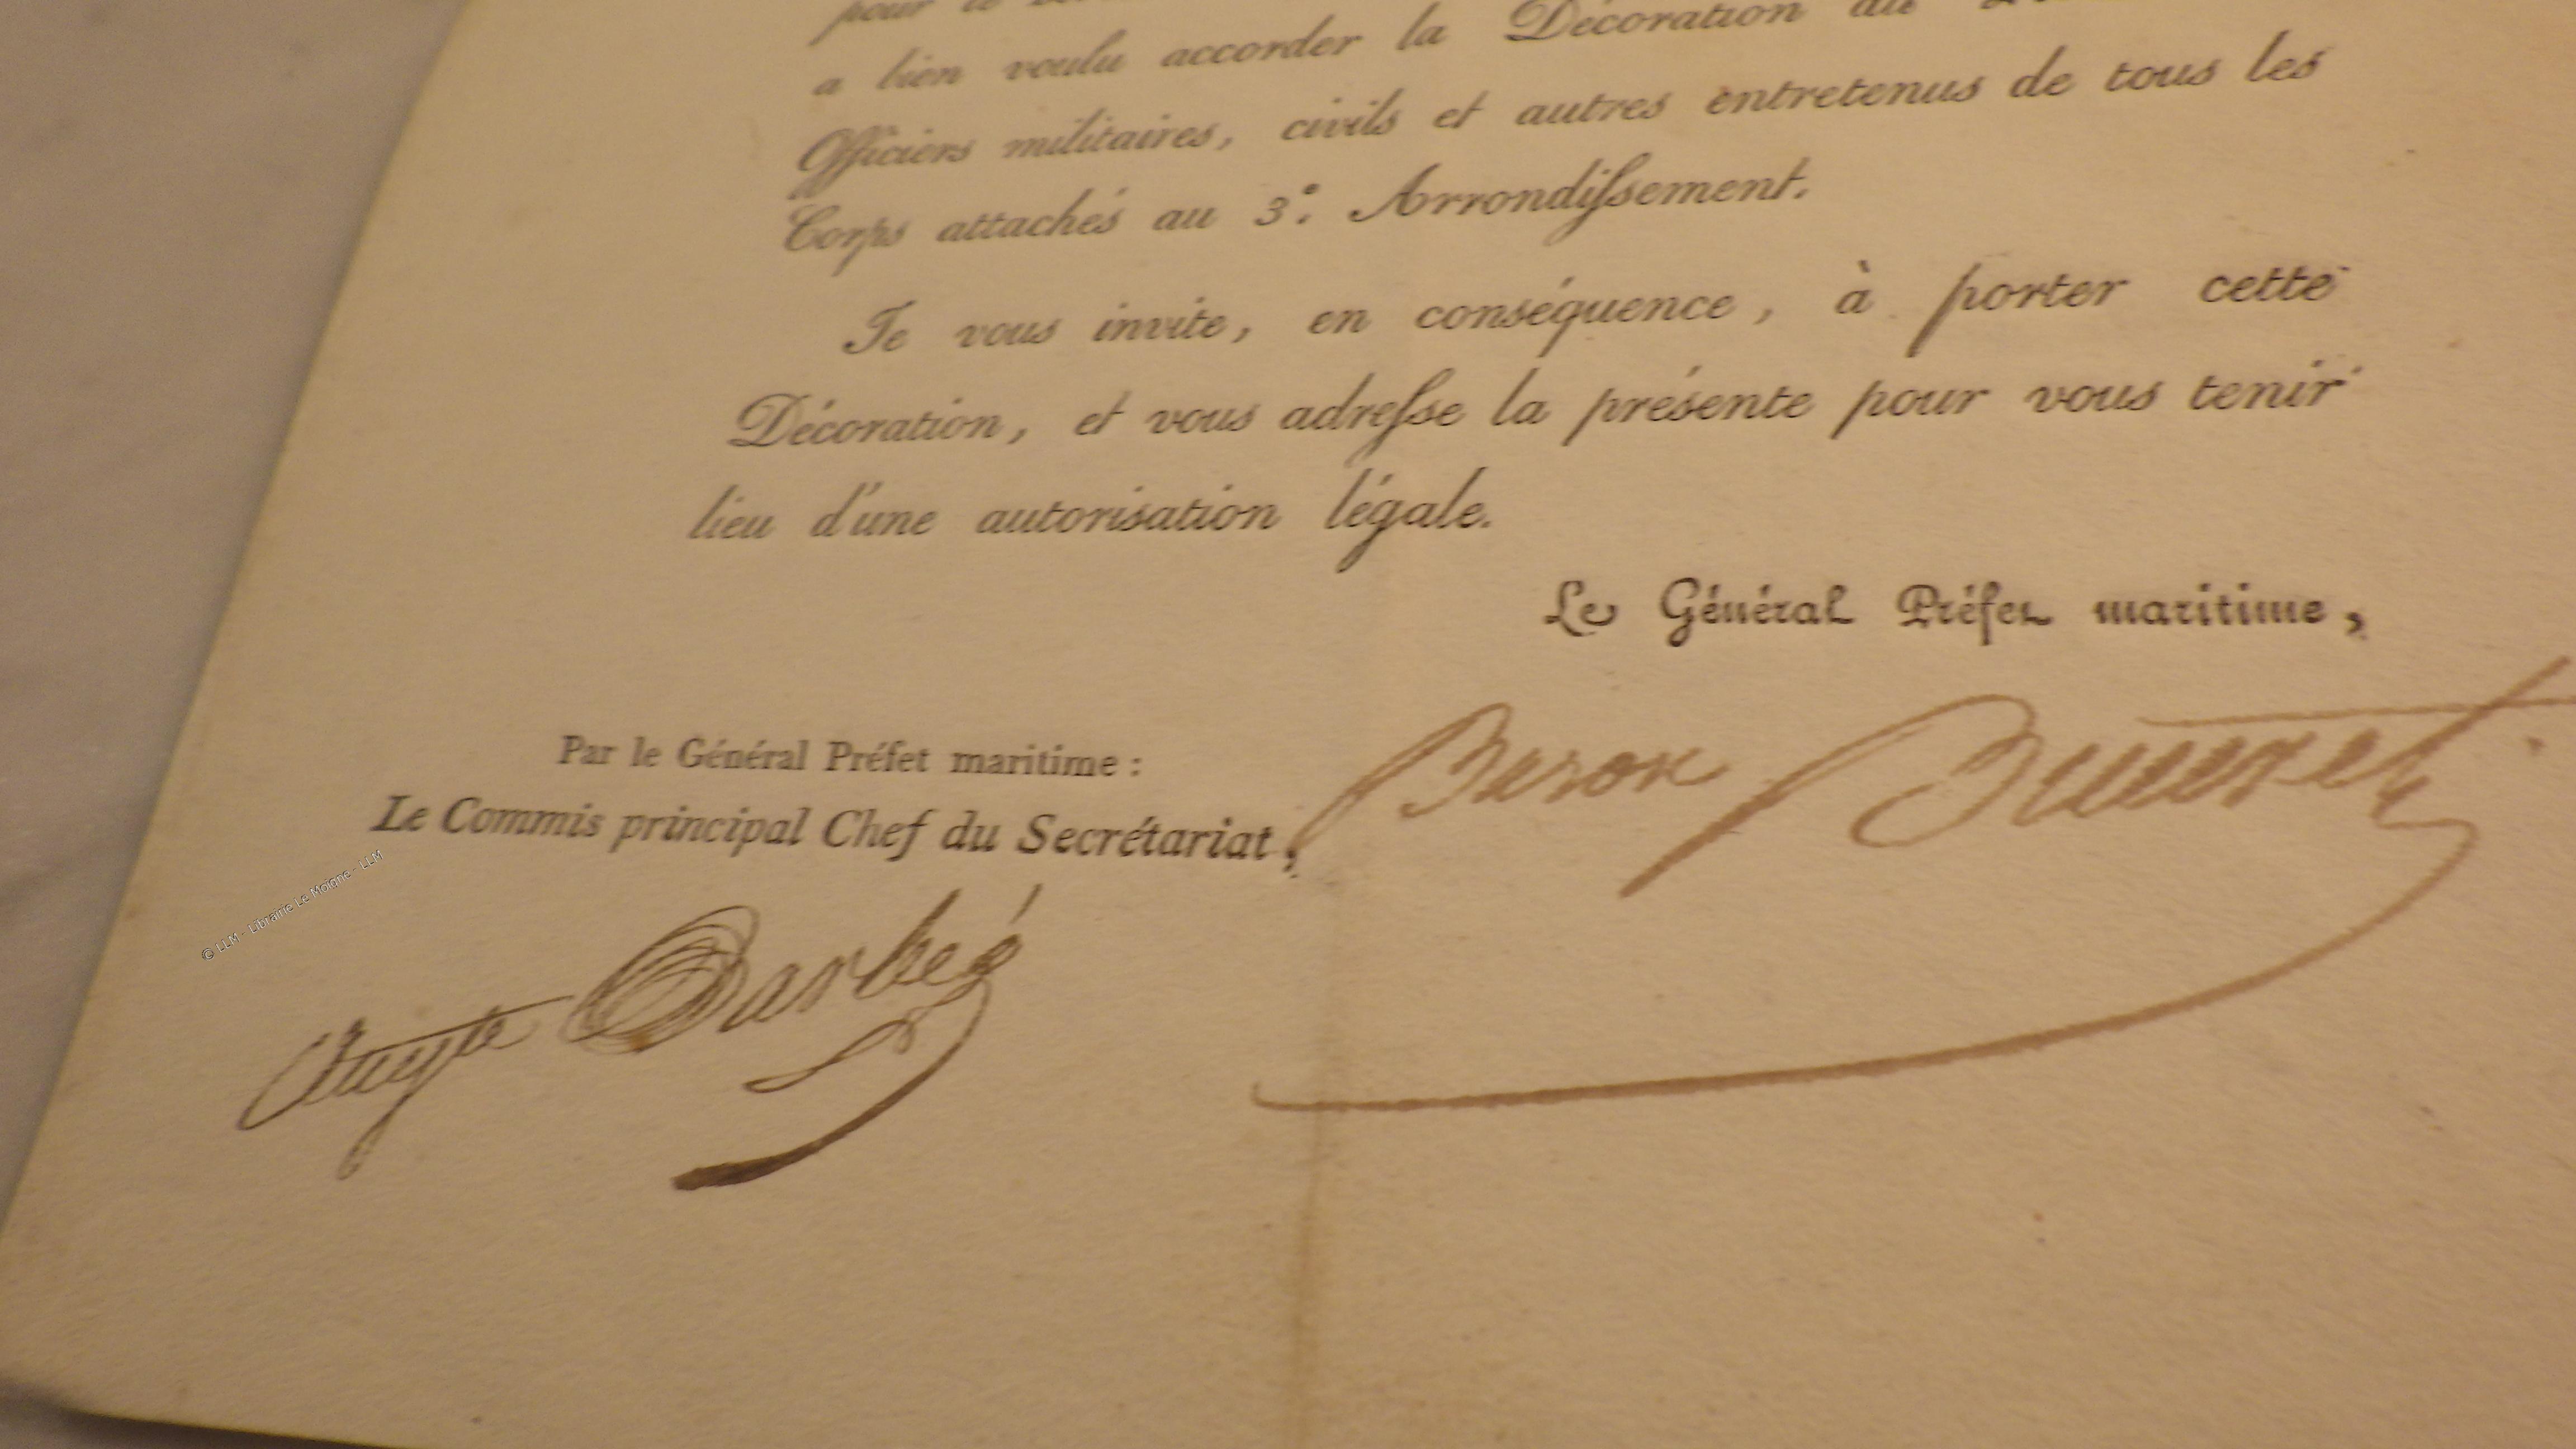 pour le
a bien voulu accorder la Décoration du
Officiers militaires, civils et autres entretenus de tous les
Corps attachés au 3e. Arrondiſsement.
Je vous invite, en conséquence, à porter cette
Décoration, et vous adreſse la présente pour vous tenir
lieu d'une autorisation légale.
Le Général Préfet maritime,
Par le Général Préfet maritime :
Le Commis principal Chef du Secrétariat,
Baron
Auguste
© LLM - Librairie Le Moigne - LLM